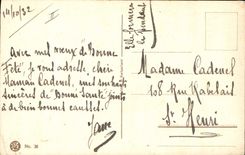 14/10/32
Avec mes vœux de Bonne
Fête, je vous adresse chère
Maman Cadenel, mes souhaits
sincères de Bonne Santé joints
à de bien bonnes
Jane
Madame Cadenel
108 Rue Rabelais
St Henri
No. 36